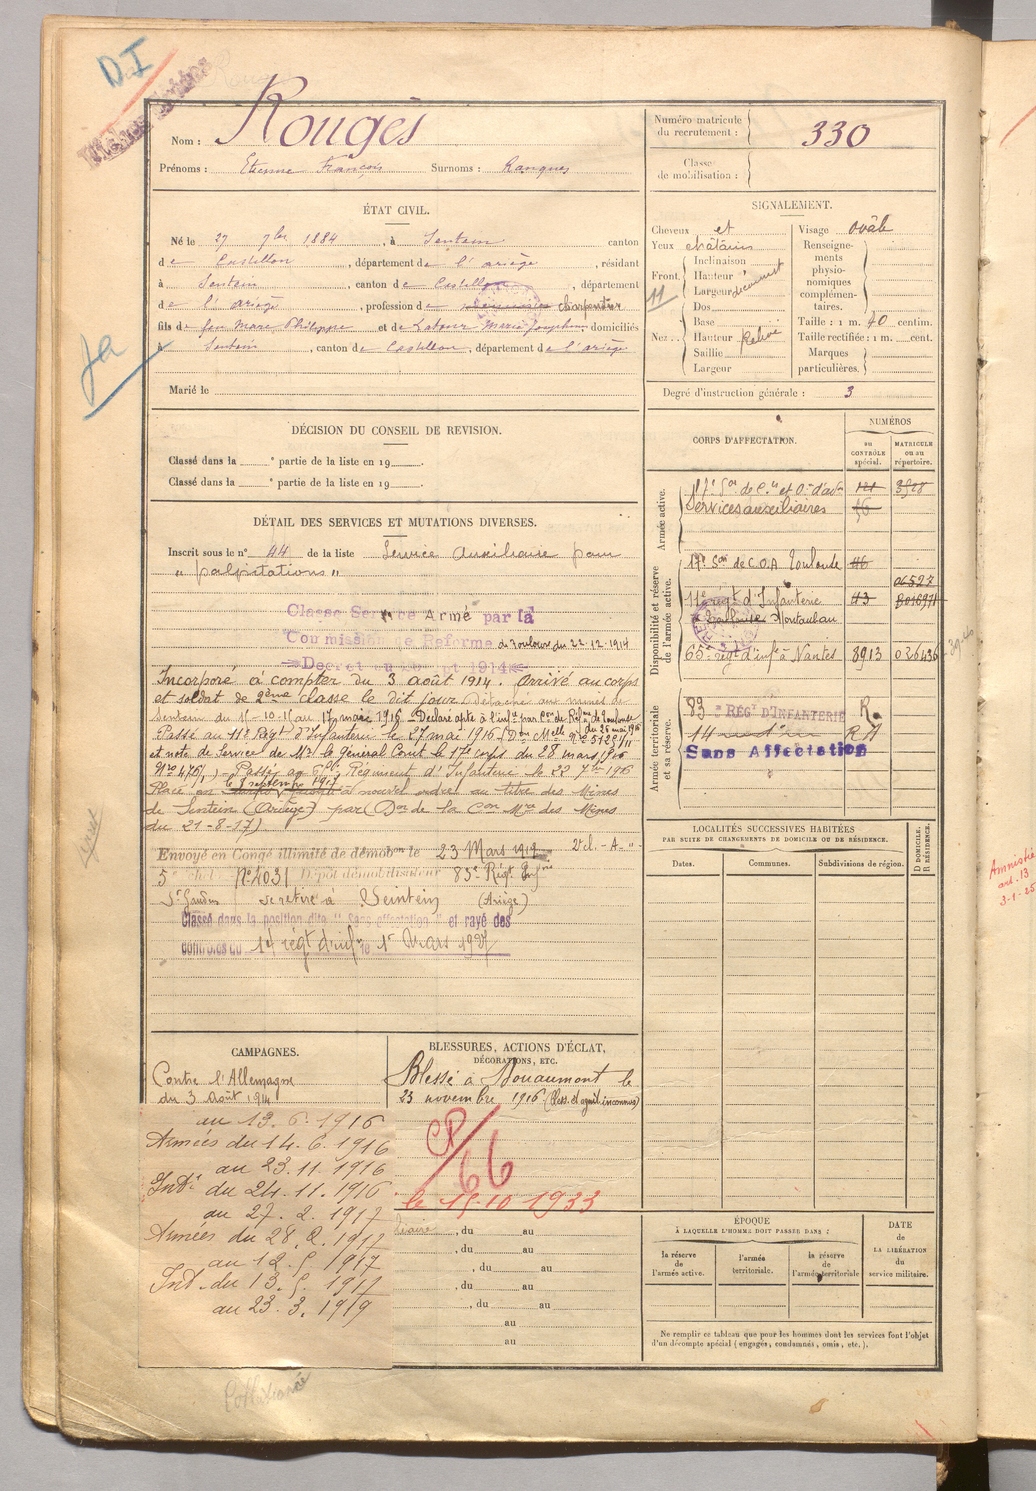 DI
Nom : Rougès
Prénoms : Etienne François Surnoms : Ranques
Numéro matricule du recrutement : 330
Classe de mobilisation :
ÉTAT CIVIL.
Né le 27 7bre 1884, à Sentein canton
de Castillon, département de l'ariège, résidant
à Sentein, canton de Castillon, département
de l'ariège, profession de charpentier
fils de feu Marc Philippe et de Latour Marie Josephine domiciliés
à Sentein, canton de Castillon, département de l'ariège
Marié le
SIGNALEMENT.
Cheveux et
Yeux châtain
Front. Inclinaison
Hauteur
Largeur découvert
Dos
Nez. Base
Hauteur Relevé
Saillie
Largeur
Visage ovale
Renseignements physionomiques complémentaires.
Taille : 1 m. 70 centim.
Taille rectifiée : 1 m. cent.
Marques particulières.
Degré d'instruction générale : 3
DÉCISION DU CONSEIL DE REVISION.
Classé dans la e partie de la liste en 19 .
Classé dans la e partie de la liste en 19 .
DÉTAIL DES SERVICES ET MUTATIONS DIVERSES.
Inscrit sous le n° 44 de la liste Service Auxiliaire pour
" palpitations "
Classé Service Armé par la
Commission de Reforme de Toulouse du 22-12-1914
Incorporé à compter du 3 août 1914. Arrivé au corps
et soldat de 2ème classe le dit jour Détaché aux mines de
Sentein du 15-10-15 au 17 mars 1916 - Déclaré apte à l'inf.ie par Con de Réfme de Toulouse
du 25 mai 1916
Passé au 11e Régt d'Infanterie le 27 mai 1916 (Don Mlle
et note de Service de Mr le général Comt le 17e corps du 28 mars 1916
Régiment d'Infanterie le 22 7bre 1916
le 3 septembre 1917
à nouvel ordre au titre des Mines
de Sentein (Ariège) par (Don de la Con Mre des Mines
du 21-8-17)
Envoyé en Congé illimité de démobon le 23 Mars 1919
5e échel. N° 4031 Dépôt démobilisateur 83e Régt Infrie
St Gaudens se retire à Seintein (Ariège)
Classé dans la position dite "Sans affectation" et rayé des
contrôles du 14 régt d'infie le 1er Mars 1927
CORPS D'AFFECTATION.
NUMÉROS
au CONTRÔLE spécial.
MATRICULE ou au répertoire.
Armée active.
17e Son de C.is et O.ers d'adon
Services auxiliaires
Disponibilité et réserve de l'armée active.
17e Son de C.O.A Toulouse
11e régt d'Infanterie
à Toulouse Montauban
65e régt d'infie à Nantes 8913
Armée territoriale et sa réserve.
83e RÉGT D'INFANTERIE
14
Sans Affectation
LOCALITÉS SUCCESSIVES HABITÉES
PAR SUITE DE CHANGEMENTS DE DOMICILE OU DE RÉSIDENCE.
Dates.
Communes.
Subdivisions de région.
D DOMICILE.
R RÉSIDENCE.
Amnistié
art. 13
3-1-25
CAMPAGNES.
Contre l'Allemagne
du 3 Août 1914
au 13.6.1916
Armées du 14.6.1916
au 23.11.1916
Intr du 24.11.1916
au 27.2.1917
Armées du 28.2.1917
au 12.5.1917
Int. du 13.5.1917
au 23.3.1919
BLESSURES, ACTIONS D'ÉCLAT,
DÉCORATIONS, ETC.
Blessé à Douaumont le
23 novembre 1916 (bless. et agent inconnus)
CP/66
le 15-10 1933
, du au
, du au
, du au
, du au
, du au
au
au
ÉPOQUE
À LAQUELLE L'HOMME DOIT PASSER DANS :
la réserve de l'armée active.
l'armée territoriale.
la réserve de l'armée territoriale
DATE DE LA LIBÉRATION du service militaire.
Ne remplir ce tableau que pour les hommes dont les services font l'objet
d'un décompte spécial (engagés, condamnés, omis, etc.).
Collationné